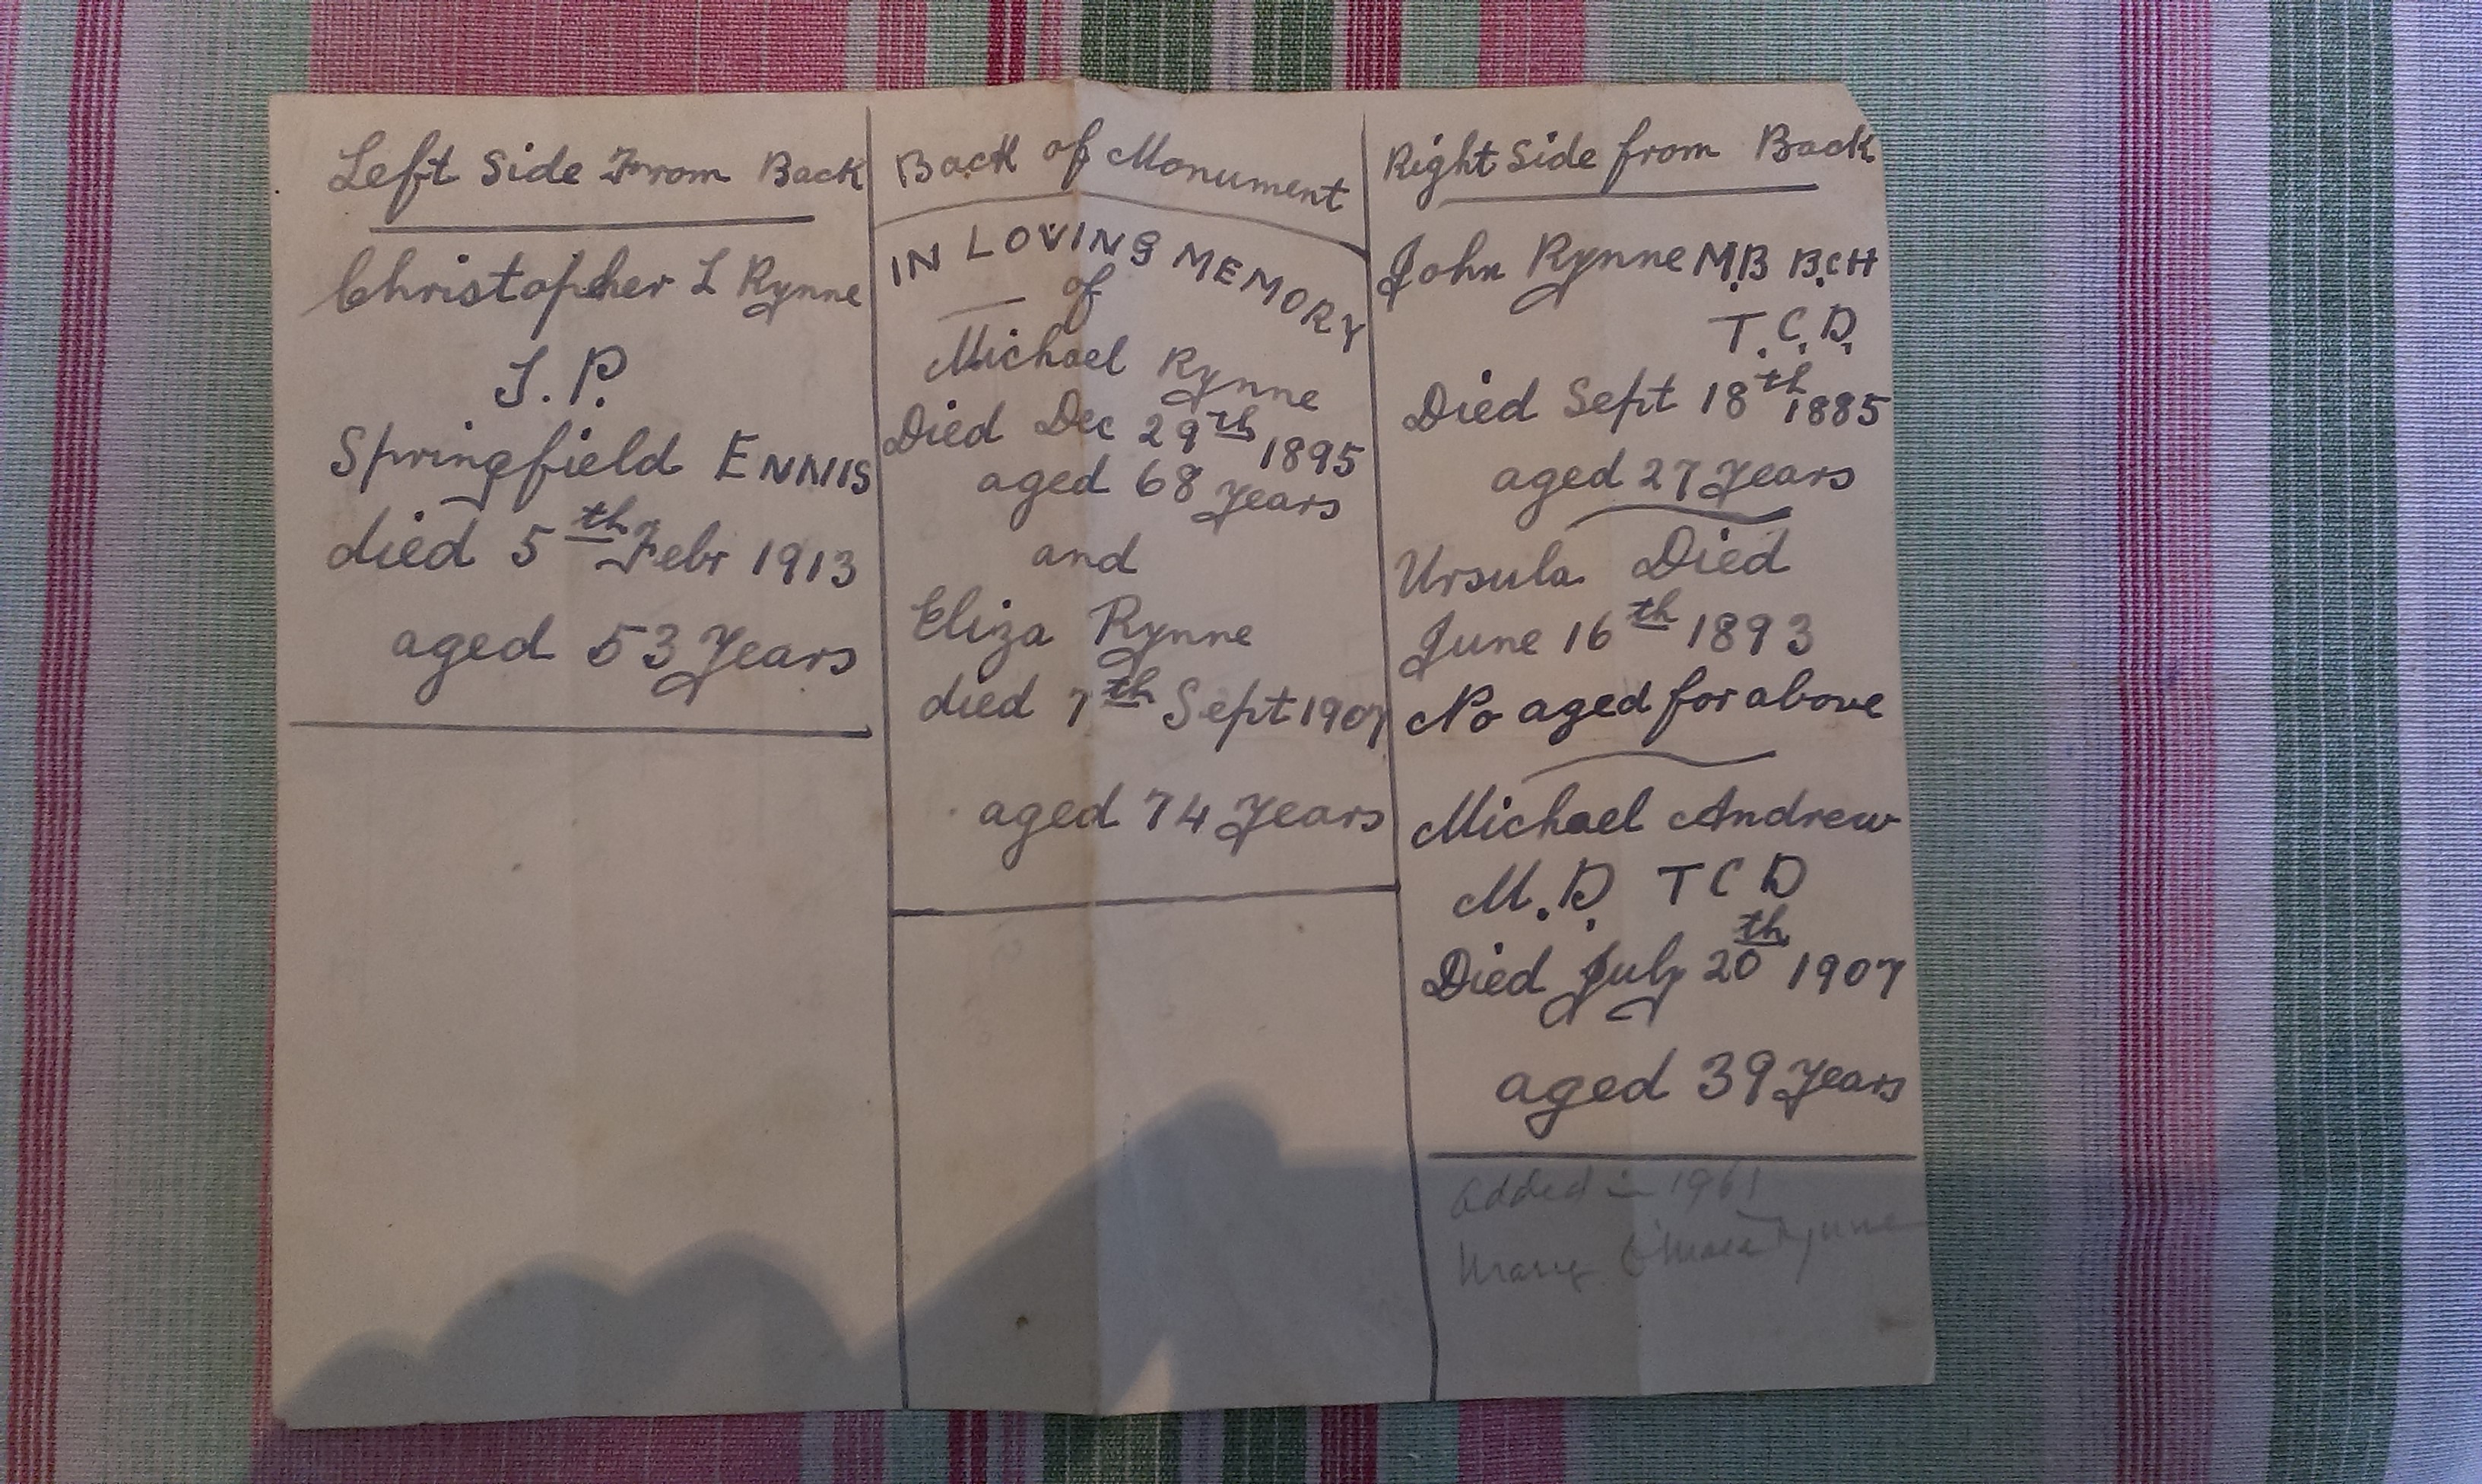 Left Side From Back
Christopher L Rynne
J.P.
Springfield ENNIS
died 5th Febr 1913
aged 53 Years
Back of Monument
IN LOVING MEMORY
of
Michael Rynne
Died Dec 29th 1895
aged 68 years
and
Eliza Rynne
died 7th Sept 1907
aged 74 Years
Right Side from Back
John Rynne M.B B.CH
T.C.D.
Died Sept 18th 1885
aged 27 Years
Ursula Died
June 16th 1893
No aged for above
Michael Andrew
M.D. T C D
Died July 20th 1907
aged 39 Years
Added in 1961
Mary O'Mara Rynne